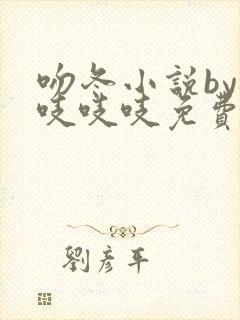 吻冬小説by
吱吱吱免費
劉彥平